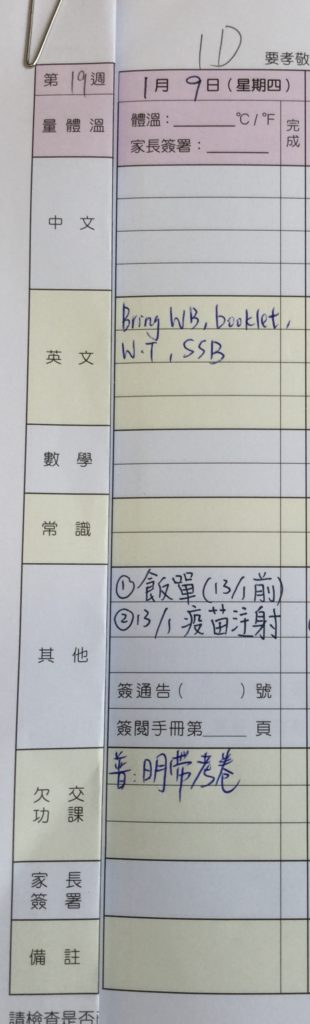 1D
要孝敬
第19週
1月9日(星期四)
量體溫
體溫：______℃/℉
家長簽署：______
完成
中文
英文
Bring WB, booklet,
W.T, SSB
數學
常識
其他
①飯單(13/1前)
②13/1疫苗注射
簽通告(　　)號
簽閱手冊第____頁
欠交
功課
普:明帶考卷
家長
簽署
備註
請檢查是否